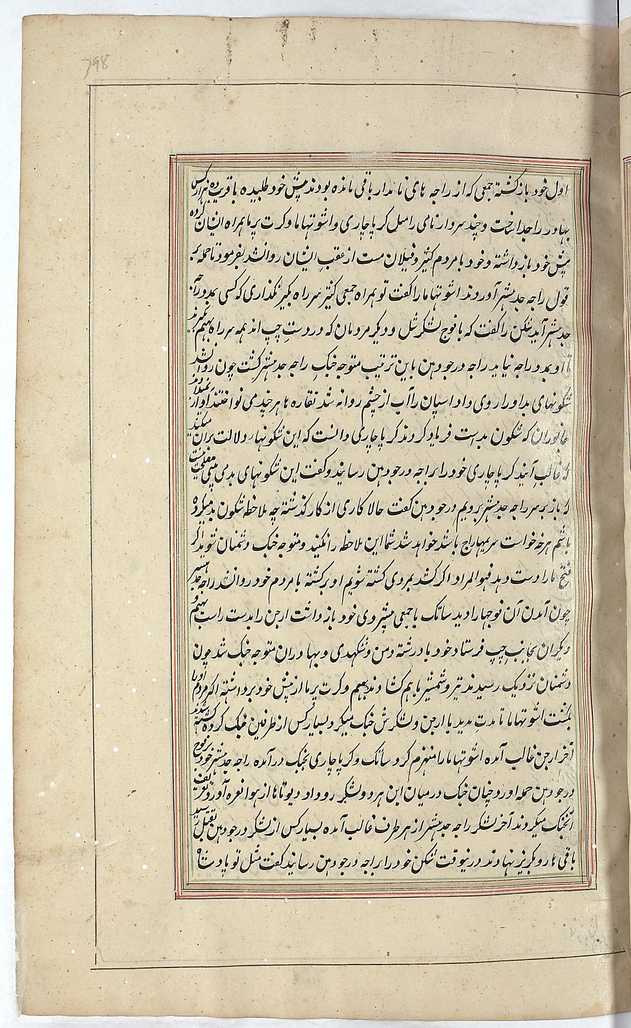 298
اول خود بازگشته جمعی که از راجه های نامدار باقی مانده بودند پیش خود طلبیده با قریب ده هزار کس
بهادر را جدا ساخت و چند سردار نامی را مثل کرپاچاری و اشوتهاما و کرت برما همراه ایشان کرده
پیش خود باز داشته و خود با مردم کثیر و فیلان مست از عقب ایشان روان شد بفرمود تا حمله بر
قول راجه جدشتر آوردند اشوتهاما را گفت تو همراه جمعی کثیر سر راه بگیر نگذاری که کسی بمدد راجه
جدشتر آید شکن را گفت که با فوج لشکر شل و دیگر مردمان که در دست چپ اند همه سر راه بهیم
تا او بمدد راجه نیاید راجه درجودهن باین ترتیب متوجه جنگ راجه جدشتر گشت چون روان شد
شگونهای بد او را روی داد اسپان را آب از چشم روانه شد نقاره ها هر چند می نواختند آواز
جانوران که شگون بد است فریاد کردند کرپاچاری دانست که این شگونها دلالت بران میکند
که غالب آیند کرپاچاری خود را براجه درجودهن رسانید و گفت این شگونهای بد می بینی
که باز بر سر راجه جدشتر برویم درجودهن گفت حالا کاری از کار گذشته چه ملاحظه شگون بد میکرده
باشم هر چه خواست سریمهاراج باشد خواهد شد شما این ملاحظه را نکنید و متوجه جنگ دشمنان شوید اگر
فتح ما را دست دهد فهو المراد اگر کشته بمردی کشته شویم او برگشته با مردم خود روان شد راجه جدشتر
چون آمدن آن فوجها را دید ساتک با جمعی پیشروی خود باز داشت ارجن را بدست راست بهیم و
دیگران بجانب چپ فرستاد خود با درشته دمن و شکهندی و بهادران متوجه جنگ شد چون
دشمنان نزدیک رسیدند تیر و شمشیر با هم گشادند بهیم و کرت برما از پیش خود برداشته اکثر مردم او را
بکشت اشوتهاما تا مدت مدید با ارجن و لشکرش جنگ میکرد بسیار کس از طرفین هلاک کردند
آخر ارجن غالب آمده اشوتهاما را منهزم کرد و ساتک و کرپاچاری بجنگ درآمده راجه جدشتر خود با فوج
درجودهن حمله آورد و چنان جنگ درمیان این هر دو لشکر رو داد دیوتاها از هوا نعره آورد
جنگ میکردند آخر لشکر راجه جدشتر از هر طرف غالب آمده بسیار کس از لشکر درجودهن بقتل رسید
باقی ها رو بگریز نهادند درینوقت شکن خود را براجه درجودهن رسانید گفت مثل تو پادشاه